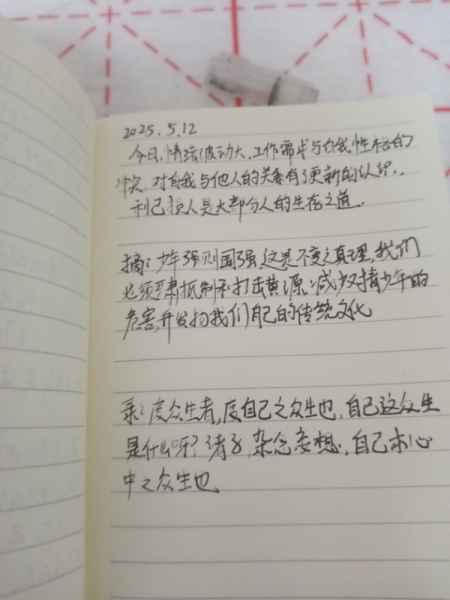 2025.5.12
今日,情绪波动大,工作需求与自我性格的
冲突,对自我与他人的关系有了更新的认识,
利己损人是大部分人的生存之道。
摘:少年强则国强,这是不变之真理,我们
必须严肃抵制和打击黄源,减少对青少年的
危害,并发扬我们自己的传统文化
录:度众生者,度自己之众生也,自己这众生
是什么呀?诸多杂念妄想,自己本心
中之众生也